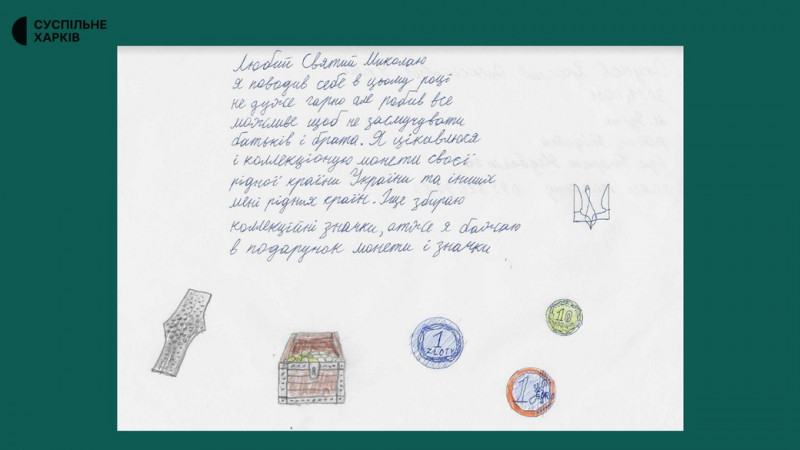 СУСПІЛЬНЕ
ХАРКІВ
Любий Святий Миколаю
Я поводив себе в цьому році
не дуже гарно але робив все
можливе щоб не засмучувати
батьків і брата. Я цікавлюся
і коллекціоную монети своєї
рідної країни України та інших
мені рідних країн. Іще збираю
коллекційні значки, отже я бажаю
в подарунок монети і значки
1
ZŁOTY
10
1